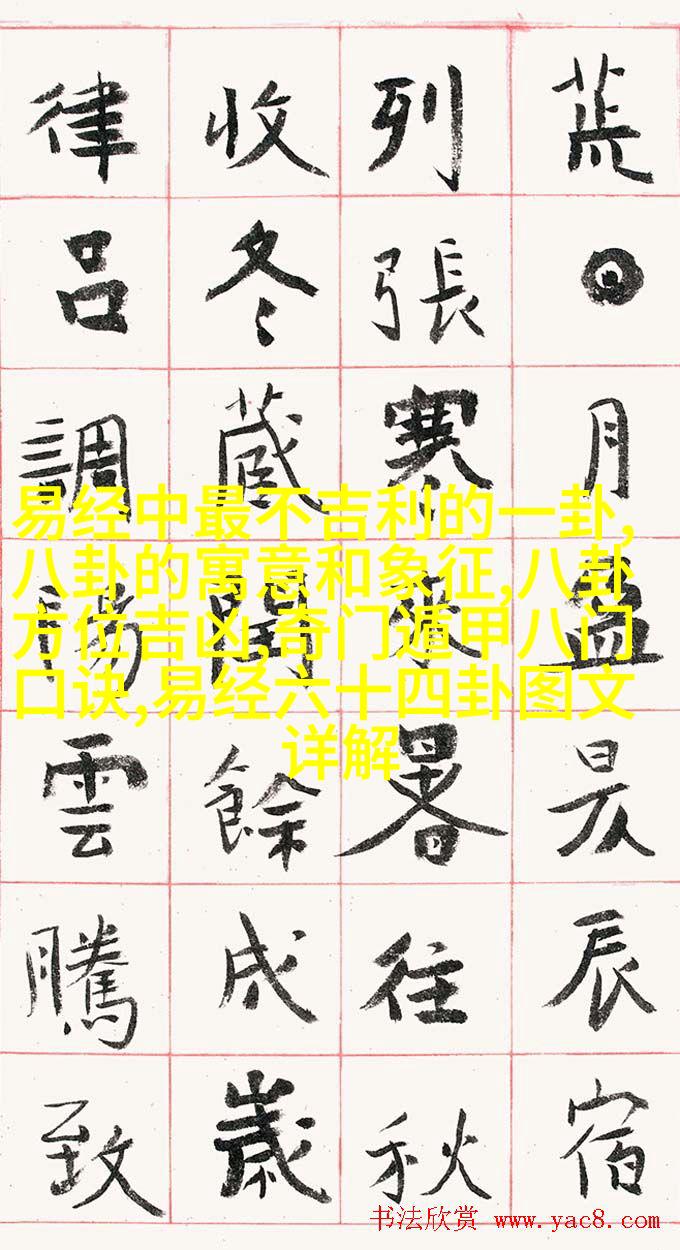 荒日月盈昃辰宿
列張寒來暑往秋
收冬藏閏餘成歲
律呂調陽雲騰致
易经中最不吉利的一卦,
八卦的寓意和象征,八卦
方位吉凶,奇门遁甲八门
口诀,易经六十四卦图文
详解
书法欣赏 www.yac8.com